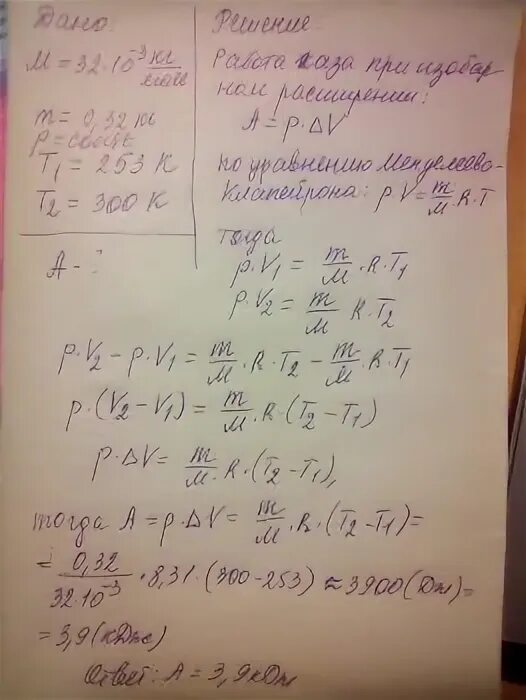 Дано:
M = 32·10⁻³ кг/моль
m = 0,32 кг
p = const
T₁ = 253 К
T₂ = 300 К
A - ?
Решение
Работа газа при изобар
ном расширении:
A = p·ΔV
по уравнению Менделеева-
Клапейрона: p·V = m/M·R·T
тогда
p·V₁ = m/M·R·T₁
p·V₂ = m/M R·T₂
p·V₂ - p·V₁ = m/M·R·T₂ - m/M·R·T₁
p·(V₂ - V₁) = m/M·R·(T₂ - T₁)
p·ΔV = m/M·R·(T₂ - T₁),
тогда A = p·ΔV = m/M·R·(T₂ - T₁) =
= 0,32/32·10⁻³·8,31·(300-253) ≈ 3900 (Дж) =
= 3,9 (кДж)
Ответ: A = 3,9 кДж